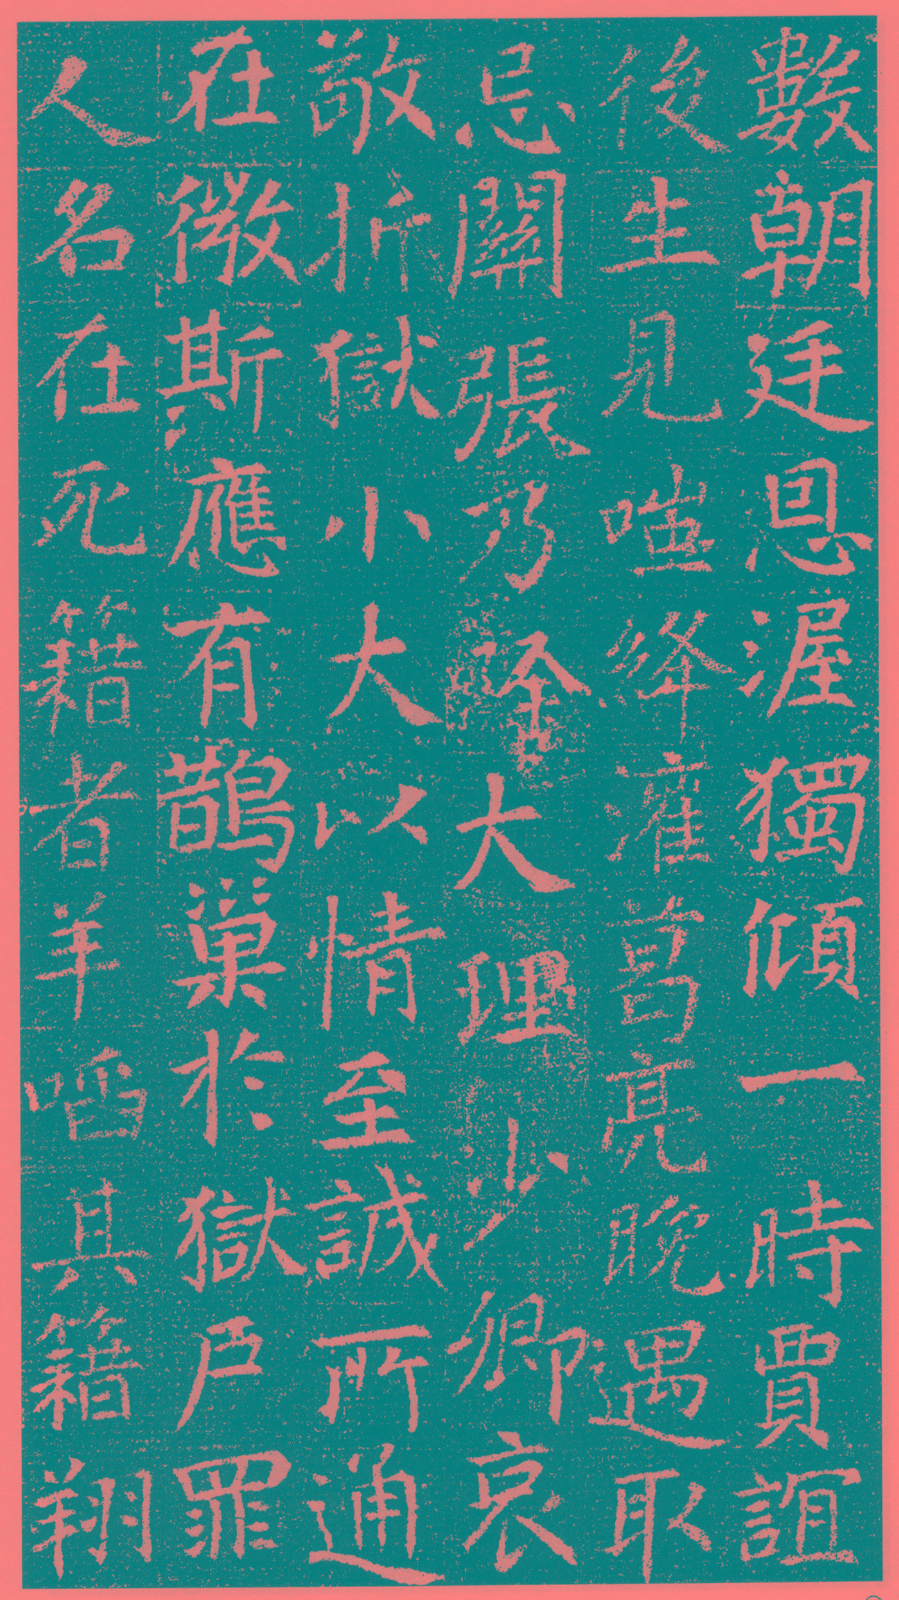 數朝廷恩渥獨傾一時賈誼
後生見嗤絳灌葛亮晚遇取
忌關張乃除大理少卿哀
敬折獄小大以情至誠所通
在微斯應有鵲巢於獄戶罪
人名在死籍者羊啗其籍翔